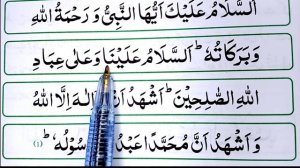 اَلسَّلَامُ عَلَيْكَ اَيُّهَا النَّبِيُّ وَ رَحْمَةُ اللهِ
وَبَرَكَاتُهٗ ؕ اَلسَّلَامُ عَلَيْنَا وَعَلٰى عِبَادِ
اللهِ الصّٰلِحِيْنَ ؕ اَشْهَدُ اَنْ لَّا اِلٰهَ اِلَّا اللهُ
وَ اَشْهَدُ اَنَّ مُحَمَّدًا عَبْدُ سُوْلُهٗ ؕ (1)